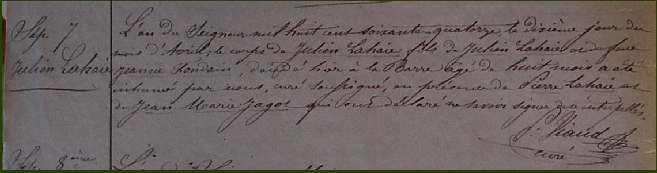 Sep. 7
Julien Lahaie
L'an du Seigneur mil huit cent soixante-quatorze, le dixième jour du
mois d'Avril, le corps de Julien Lahaie fils de Julien Lahaie et de feue
Jeanne Rondain, décédé hier à la Barre âgé de huit mois a été
inhumé par nous, curé soussigné, en présence de Pierre Lahaie et
de Jean Marie Jagot qui ont déclaré ne savoir signer, de ce interpellés.
Viaud
curé
Sep. 8ème